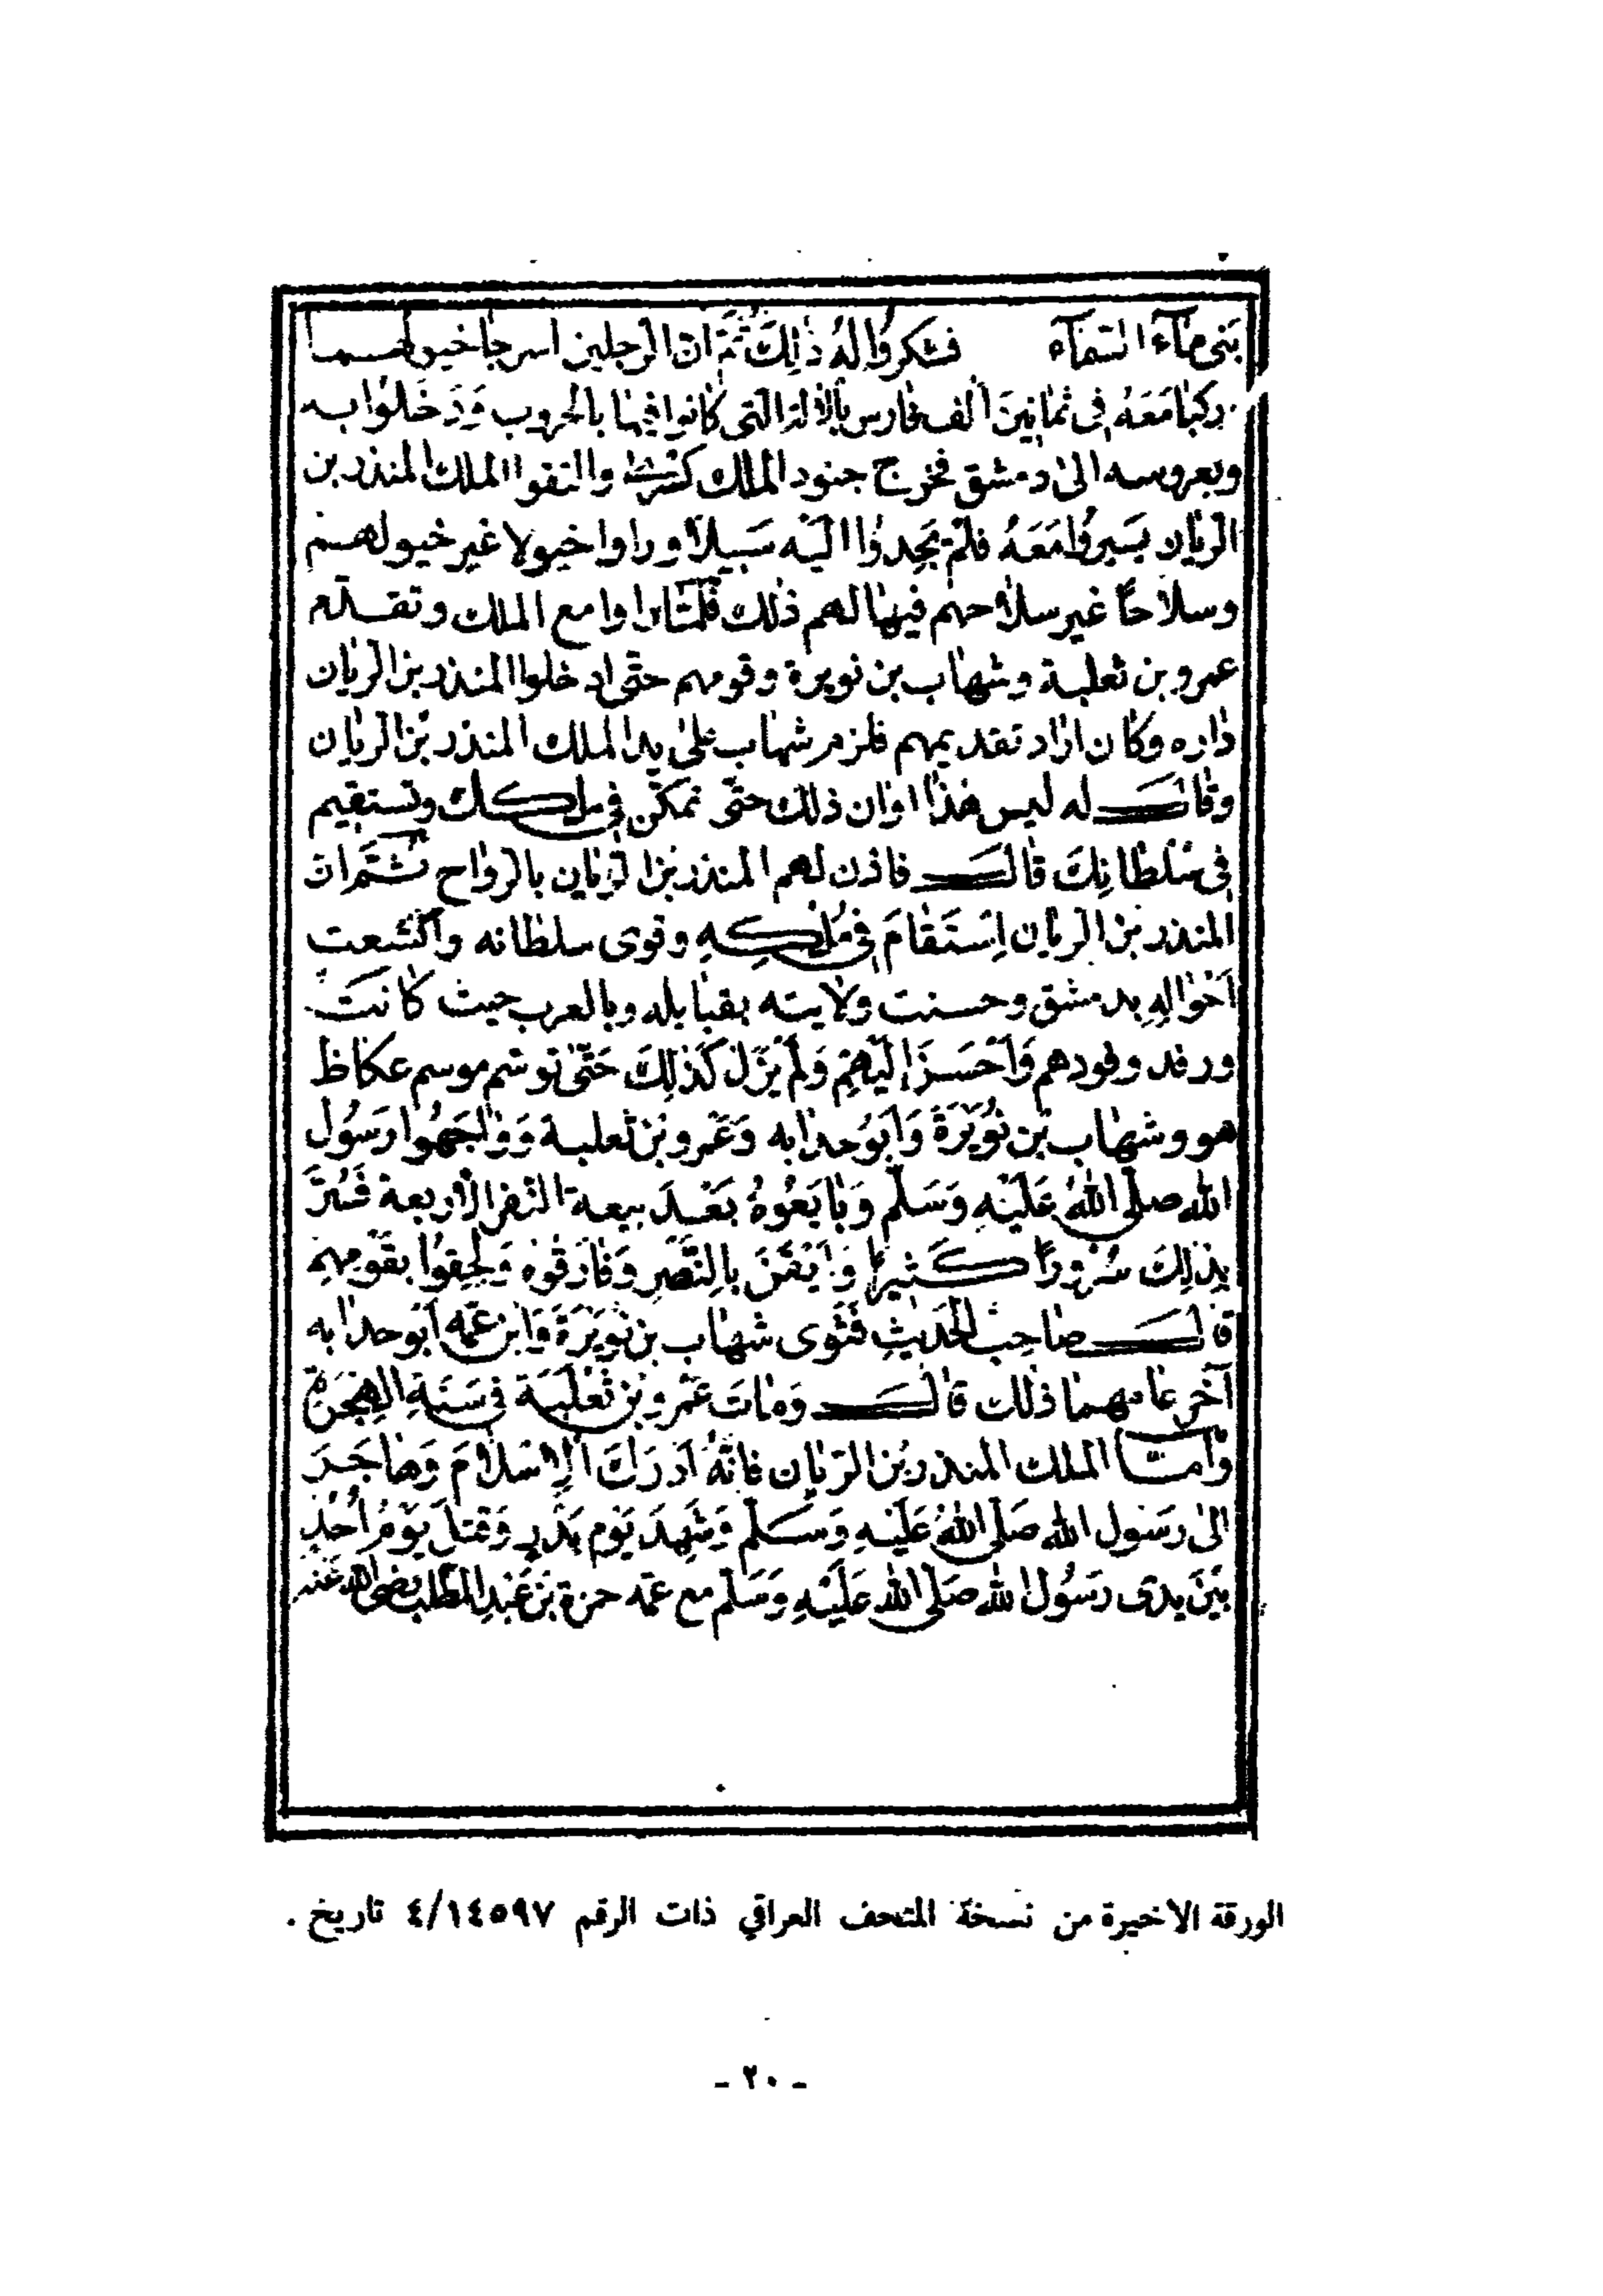 بَنى مآء السّمآء فشكروا لهُ ذٰلِكَ ثُمَّ انّ الرجلين اسرجا خيولهما
وركبا مَعَهُ فى ثمانينَ الف فارس بالآلة التى كانوا فيها بالحروب وَدَخَلوُا به
وبعروسه الىٰ دمشق فخرج جنود الملك كسرى والتقوا الملك المنذر بن
الريان يسيروُا مَعَهُ فلمْ يَجِدوُا اليْه سَبيلاً وراوا خيولا غير خيولهم
وسلاحًا غير سلاحهم فيها لهم ذلك فلمّا راوا مع الملك وتقدم
عمرو بن ثعلبة وشهاب بن نويرة وقومهم حتّى ادخلوا المنذر بن الريان
داره وكان اراد تقديمهم فلزم شهاب على يد الملك المنذر بن الريان
وقال له ليس هٰذا اوان ذلك حتّى تمكّن فى ملكك وتستقيم
فى سُلطانِكَ قال فاذن لهم المنذر بن الريان بالرواح ثُمَّ ان
المنذر بن الريان اِسْتَقامَ فى مُلْكِهِ وقوى سلطانه
اَحْوالِهِ بدمشق وحسنت ولايته بقبايله وبالعرب حيث كانت
ورفد وفودهم وَاَحْسَنَ اِليْهِمْ وَلمْ يَزَلْ كَذٰلِكَ حَتّىٰ توسّم موسم عكاظ
هو وشهاب بْن نُوَيْرَةَ وَابوُ حدابه وَعَمرو بْن ثعلبة وَوٰاجَهُوا رَسُول
الله صلّى اللهُ عَليْهِ وَسَلّم وَبايَعُوهُ بَعْدَ بيعة النّفر الأربعة فَسُرَّ
بِذلِكَ سُروُرًا كَثيرًا وَاَيْقَنَ بِالنّصْرِ وَفارَقوُه وَلَحِقوُا بقَوْمِهِمْ
قالَ صٰاحِبُ الحَديثِ فَتُوى شهاب بن نويْرَةَ وَابن عمّه ابو حدابه
آخر عامهما ذلك قالَ وَمٰاتَ عَمْرو بْن ثَعْلبَة فى سَنَةِ الهِجْرَة
وَامّا الملك المنذر بْن الريان فانّهُ اَدْرَكَ الاِسْلامَ وَهٰاجَرَ
الىٰ رسَول الله صَلّى اللهُ عَليْهِ وَسَلّم وَشَهِدَ يَوْم بَدْرٍ وَقُتِلَ يَوْمَ اُحُدٍ
بيْنَ يدَى رسَوُل الله صَلّى الله عَليْهِ وَسَلّم مع عمّه حمزة بْن عَبْدِ المطّلب رضى الله عنه
الورقة الاخيرة من نسخة المتحف العراقي ذات الرقم ١٤٥٩٧/٤ تاريخ .
- ٢٠ -